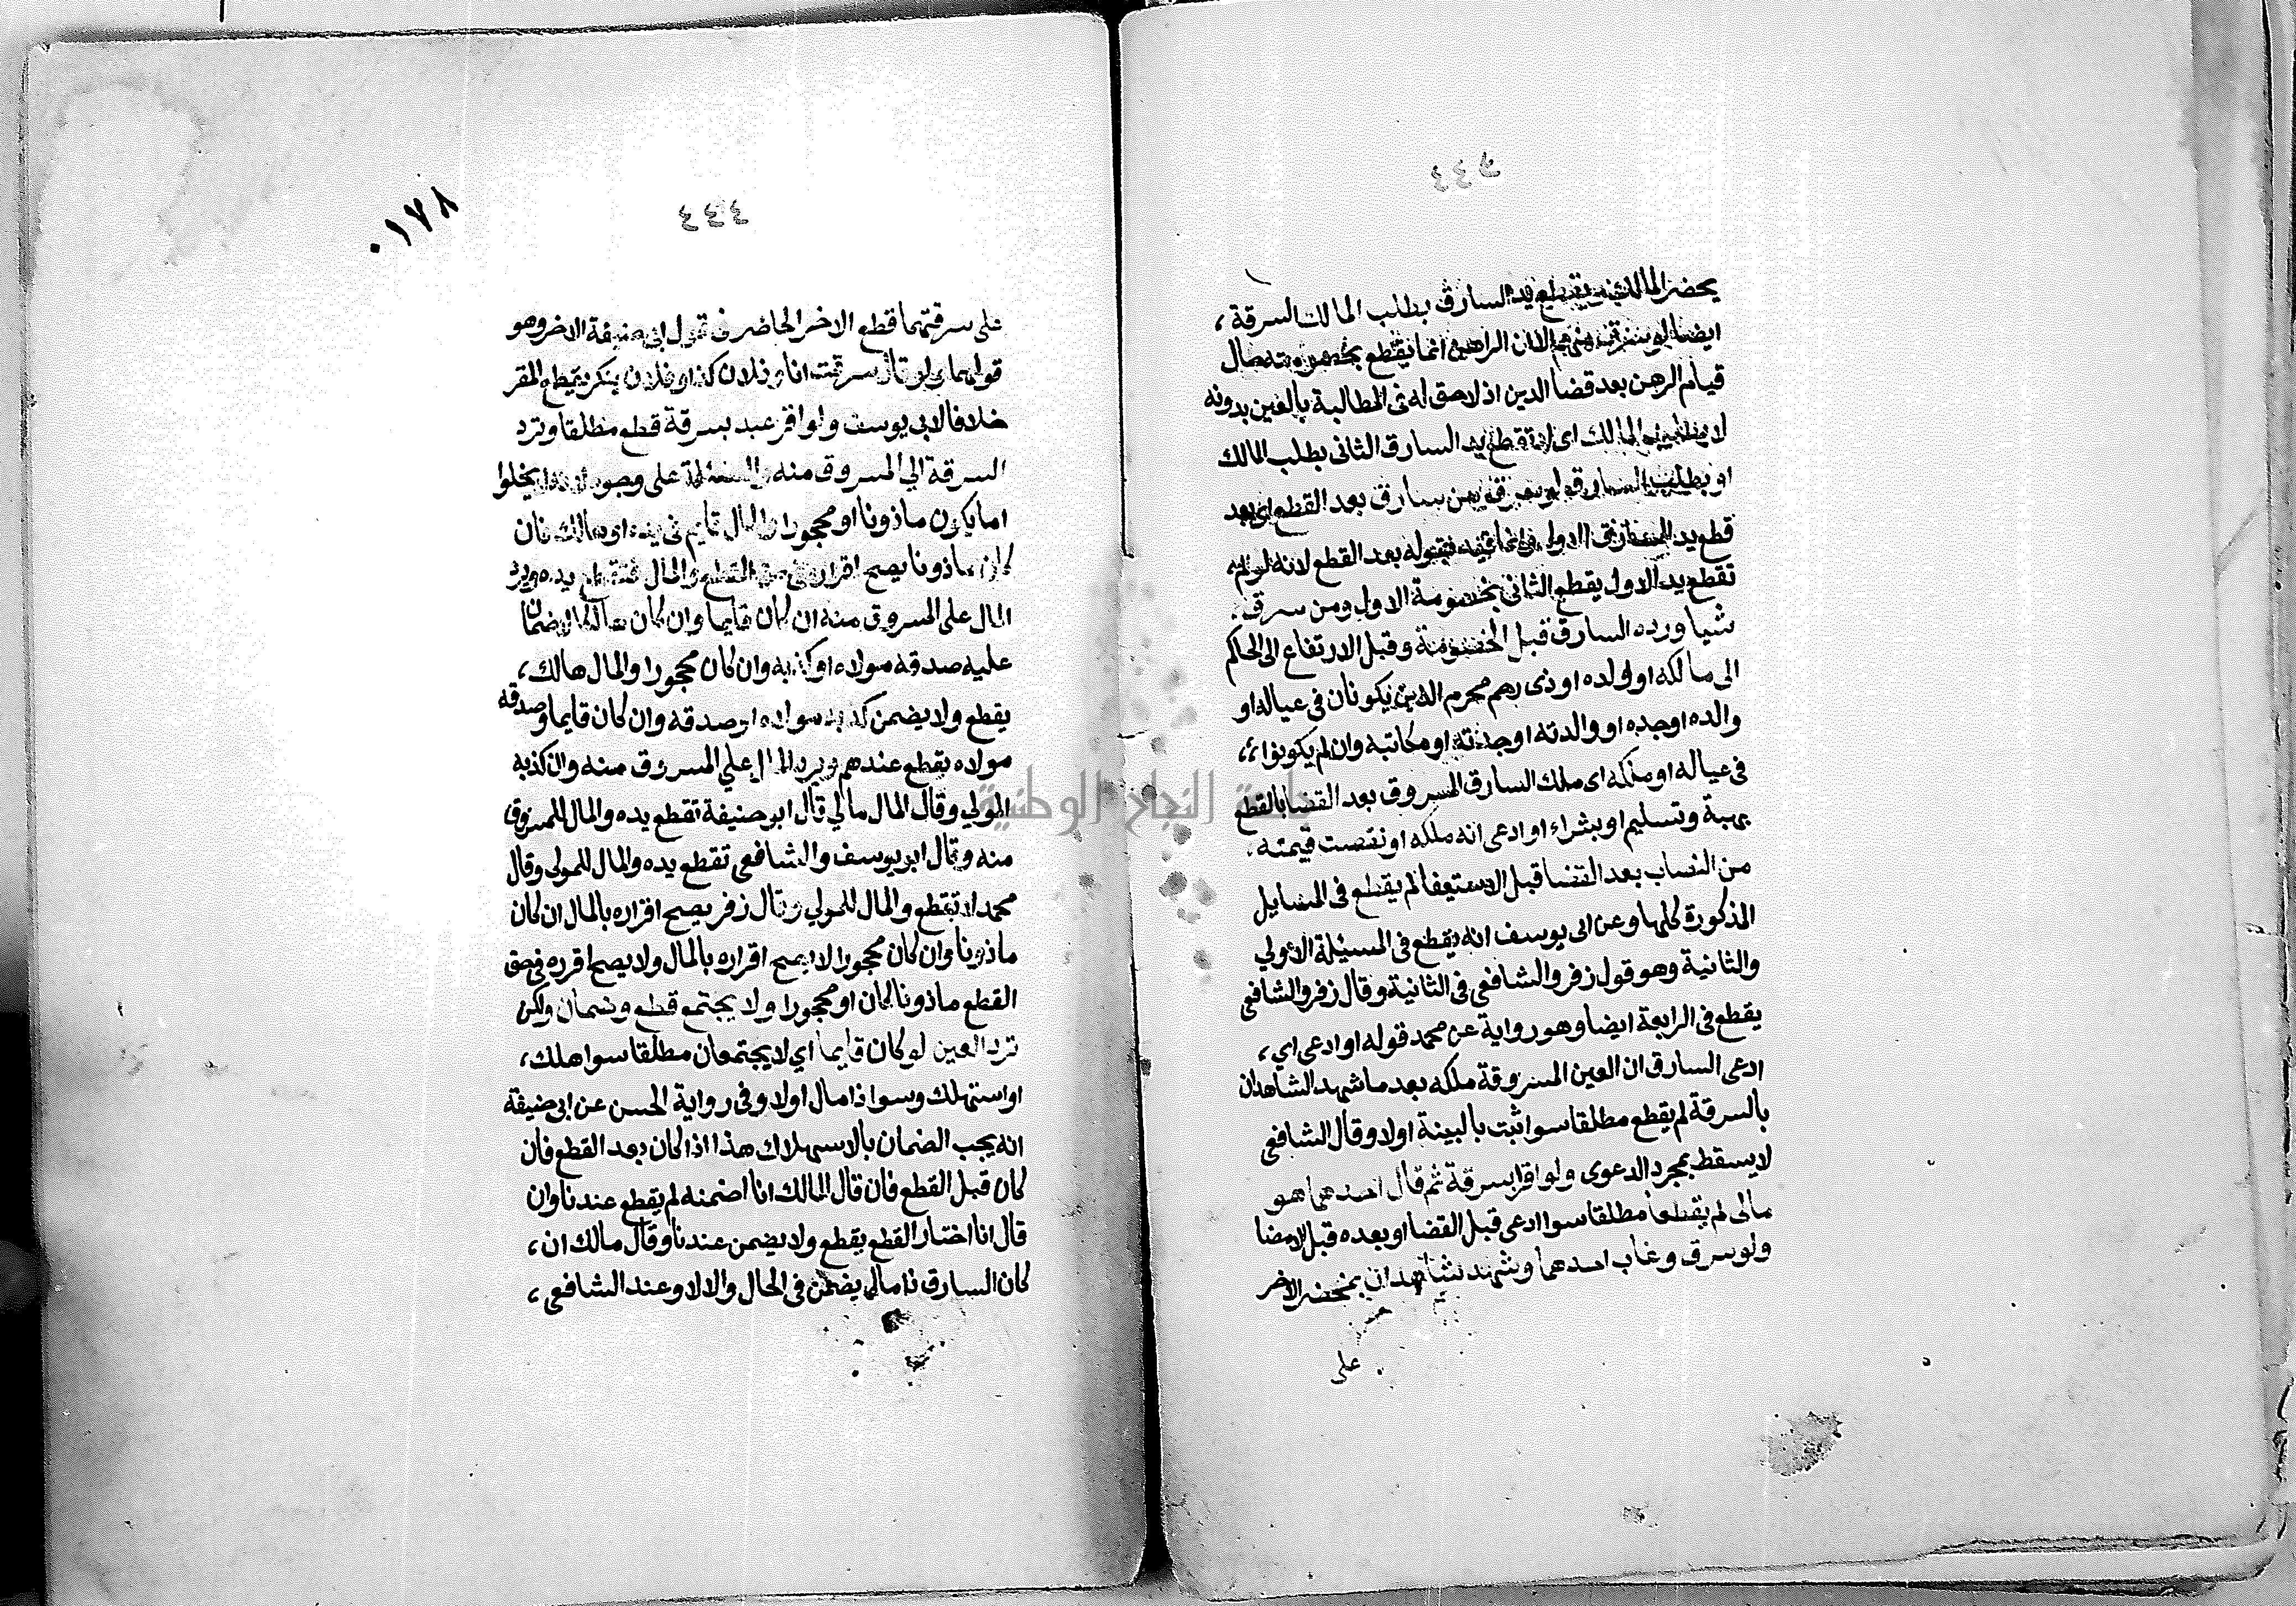 يحضر المالك ويقطع يد السارق بطلب المالك السرقة،
ايضا لو سرق منهم الا ان الراهن انما يقطع بخصومته حال
قيام الرهن بعد قضا الدين اذ لا حق له فى المطالبة بالعين بدونه
لا بطلب المالك اى لا تقطع يد السارق الثانى بطلب المالك
او بطلب السارق لو سرق من سارق بعد القطع اى بعد
قطع يد السارق الاول وانما قيد بقوله بعد القطع لانه لو لم
تقطع يد الاول يقطع الثانى بخصومة الاول ومن سرق
شيا ورده السارق قبل الخصومة وقبل الارتفاع الى الحاكم
الى مالكه او ولده او ذى رحم محرم الذين يكونان فى عياله او
والده او جده او والدته او جدته او مكاتبه وان لم يكونوا،
فى عياله او ملكه اى ملك السارق المسروق بعد القضا بالقطع
بهبة وتسليم او بشراء او ادعى انه ملكه او نقصت قيمته
من النصاب بعد القضا قبل الاستيفا لم يقطع فى المسايل
المذكورة كلها وعن ابى يوسف انه يقطع فى المسئلة الاولي
والثانية وهو قول زفر والشافعى فى الثانية وقال زفر والشافعى
يقطع فى الرابعة ايضا وهو رواية عن محمد قوله او ادعى اي،
ادعى السارق ان العين المسروقة ملكه بعد ما شهد الشاهدان
بالسرقة لم يقطع مطلقا سوا ثبت بالبينة اولا وقال الشافعى
لا يسقط بمجرد الدعوى ولو اقرا بسرقة ثم قال احدهما هو
مالى لم يقطعا مطلقا سوا ادعى قبل القضا او بعده قبل الامضا
ولو سرق وغاب احدهما وشهد شاهدان بمحضر الاخر
على
٤٤٤
٠١٧٨
على سرقتهما قطع الاخر الحاضر فى قول ابى حنيفة الاخر وهو
قولهما ولو قال سرقت انا وفلان كذا وفلان ينكر يقطع المقر
خلافا لابى يوسف ولو اقر عبد بسرقة قطع مطلقا وترد
السرقة الي المسروق منه والمسئلة على وجوه لانه لا يخلوا
اما يكون ماذونا او محجورا والمال قايم فى يده او هالك فان
كان ماذونا يصح اقراره فى حق القطع والمال فتقطع يده ويرد
المال على المسروق منه ان كان قايما وان كان هالكا لا ضمان
عليه صدقه مولاه او كذبه وان كان محجورا والمال هالك،
يقطع ولا يضمن كذبه مولاه او صدقه وان كان قايما وصدقه
مولاه يقطع عندهم ويرد المال علي المسروق منه وان كذبه
المولي وقال المال مالي قال ابو حنيفة تقطع يده والمال للمسروق
منه وقال ابو يوسف والشافعى تقطع يده والمال للمولى وقال
محمد لا تقطع والمال للمولي وقال زفر يصح اقراره بالمال ان كان
ماذونا وان كان محجورا لا يصح اقراره بالمال ولا يصح اقرره فى حق
القطع ماذونا كان او محجورا ولا يجتمع قطع وضمان ولكن
ترد العين لو كان قايما اي لا يجتمعان مطلقا سوا هلك،
او استهلك وسوا ذا مال اولا وفى رواية الحسن عن ابى حنيفة
انه يجب الضمان بالاستهلاك هذا اذا كان بعد القطع فان
كان قبل القطع فان قال المالك انا اضمنه لم يقطع عندنا وان
قال انا اختار القطع يقطع ولا يضمن عندنا وقال مالك ان،
كان السارق ذا مال يضمن فى الحال والا لا وعند الشافعى،
جامعة النجاح الوطنية